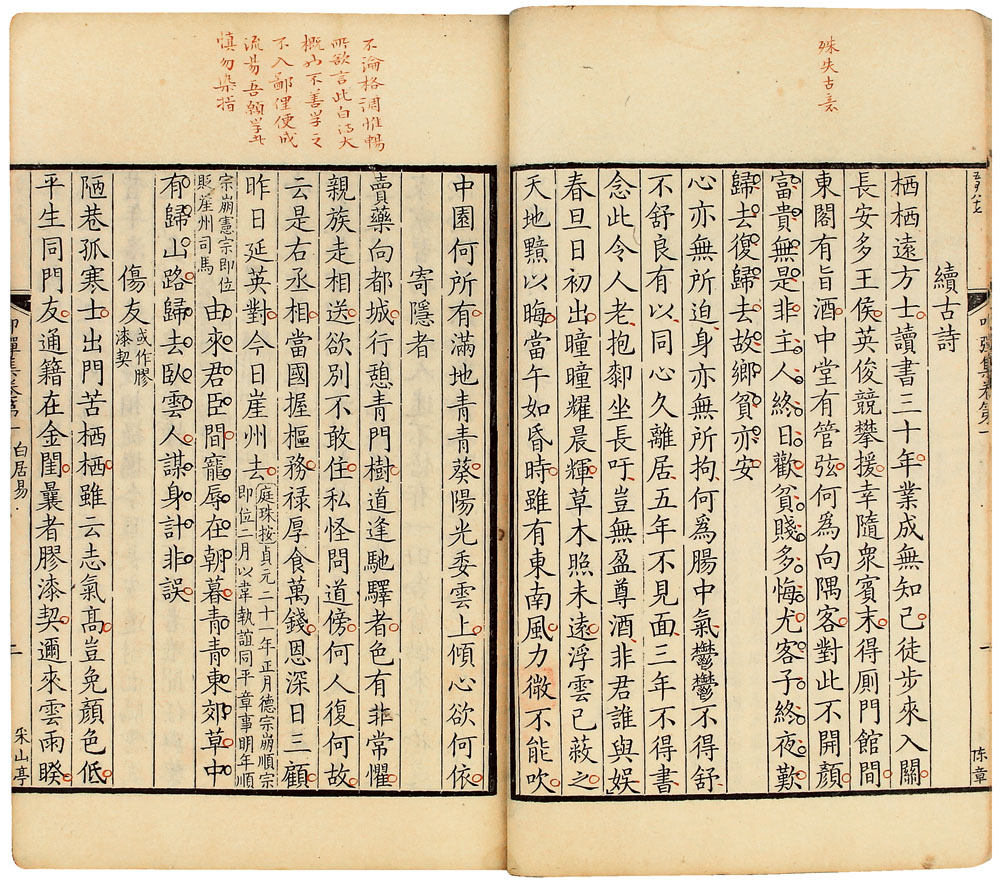 殊失古意
續古詩
栖栖遠方士讀書三十年業成無知己徒步來入關
長安多王侯英俊競攀援幸隨衆賓末得厠門館間
東閣有旨酒中堂有管弦何為向隅客對此不開顏
富貴無是非主人終日歡貧賤多悔尤客子終夜歎
歸去復歸去故鄉貧亦安
心亦無所迫身亦無所拘何為腸中氣鬱鬱不得舒
不舒良有以同心久離居五年不見面三年不得書
念此令人老抱膝坐長吁豈無盈尊酒非君誰與娱
春旦日初出曈曈耀晨輝草木照未遠浮雲已蔽之
天地黯以晦當午如昏時雖有東南風力微不能吹
陈章
不論格调惟暢
所欲言此白诗大
概也不善学之
不入鄙俚便成
流易吾輩学
慎勿染指
中園何所有滿地青青葵陽光委雲上傾心欲何依
寄隱者
賣藥向都城行憩青門樹道逢馳驛者色有非常懼
親族走相送欲別不敢住私怪問道傍何人復何故
云是右丞相當國握樞務禄厚食萬錢恩深日三顧
昨日延英對今日崖州去庭珠按貞元二十一年正月德宗崩順宗
即位二月以韋執誼同平章事明年順
宗崩憲宗即位
貶崖州司馬由來君臣間寵辱在朝暮青青東郊草中
有歸山路歸去臥雲人謀身計非誤
傷友或作膠
漆契
陋巷孤寒士出門苦栖栖雖云志氣高豈免顏色低
平生同門友通籍在金閨曩者膠漆契邇來雲雨睽
叩彈集卷第一 白居易 二 采山亭